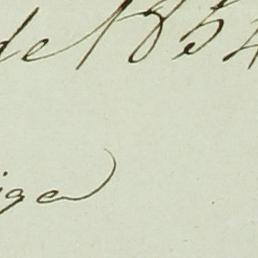 de 1854
iga